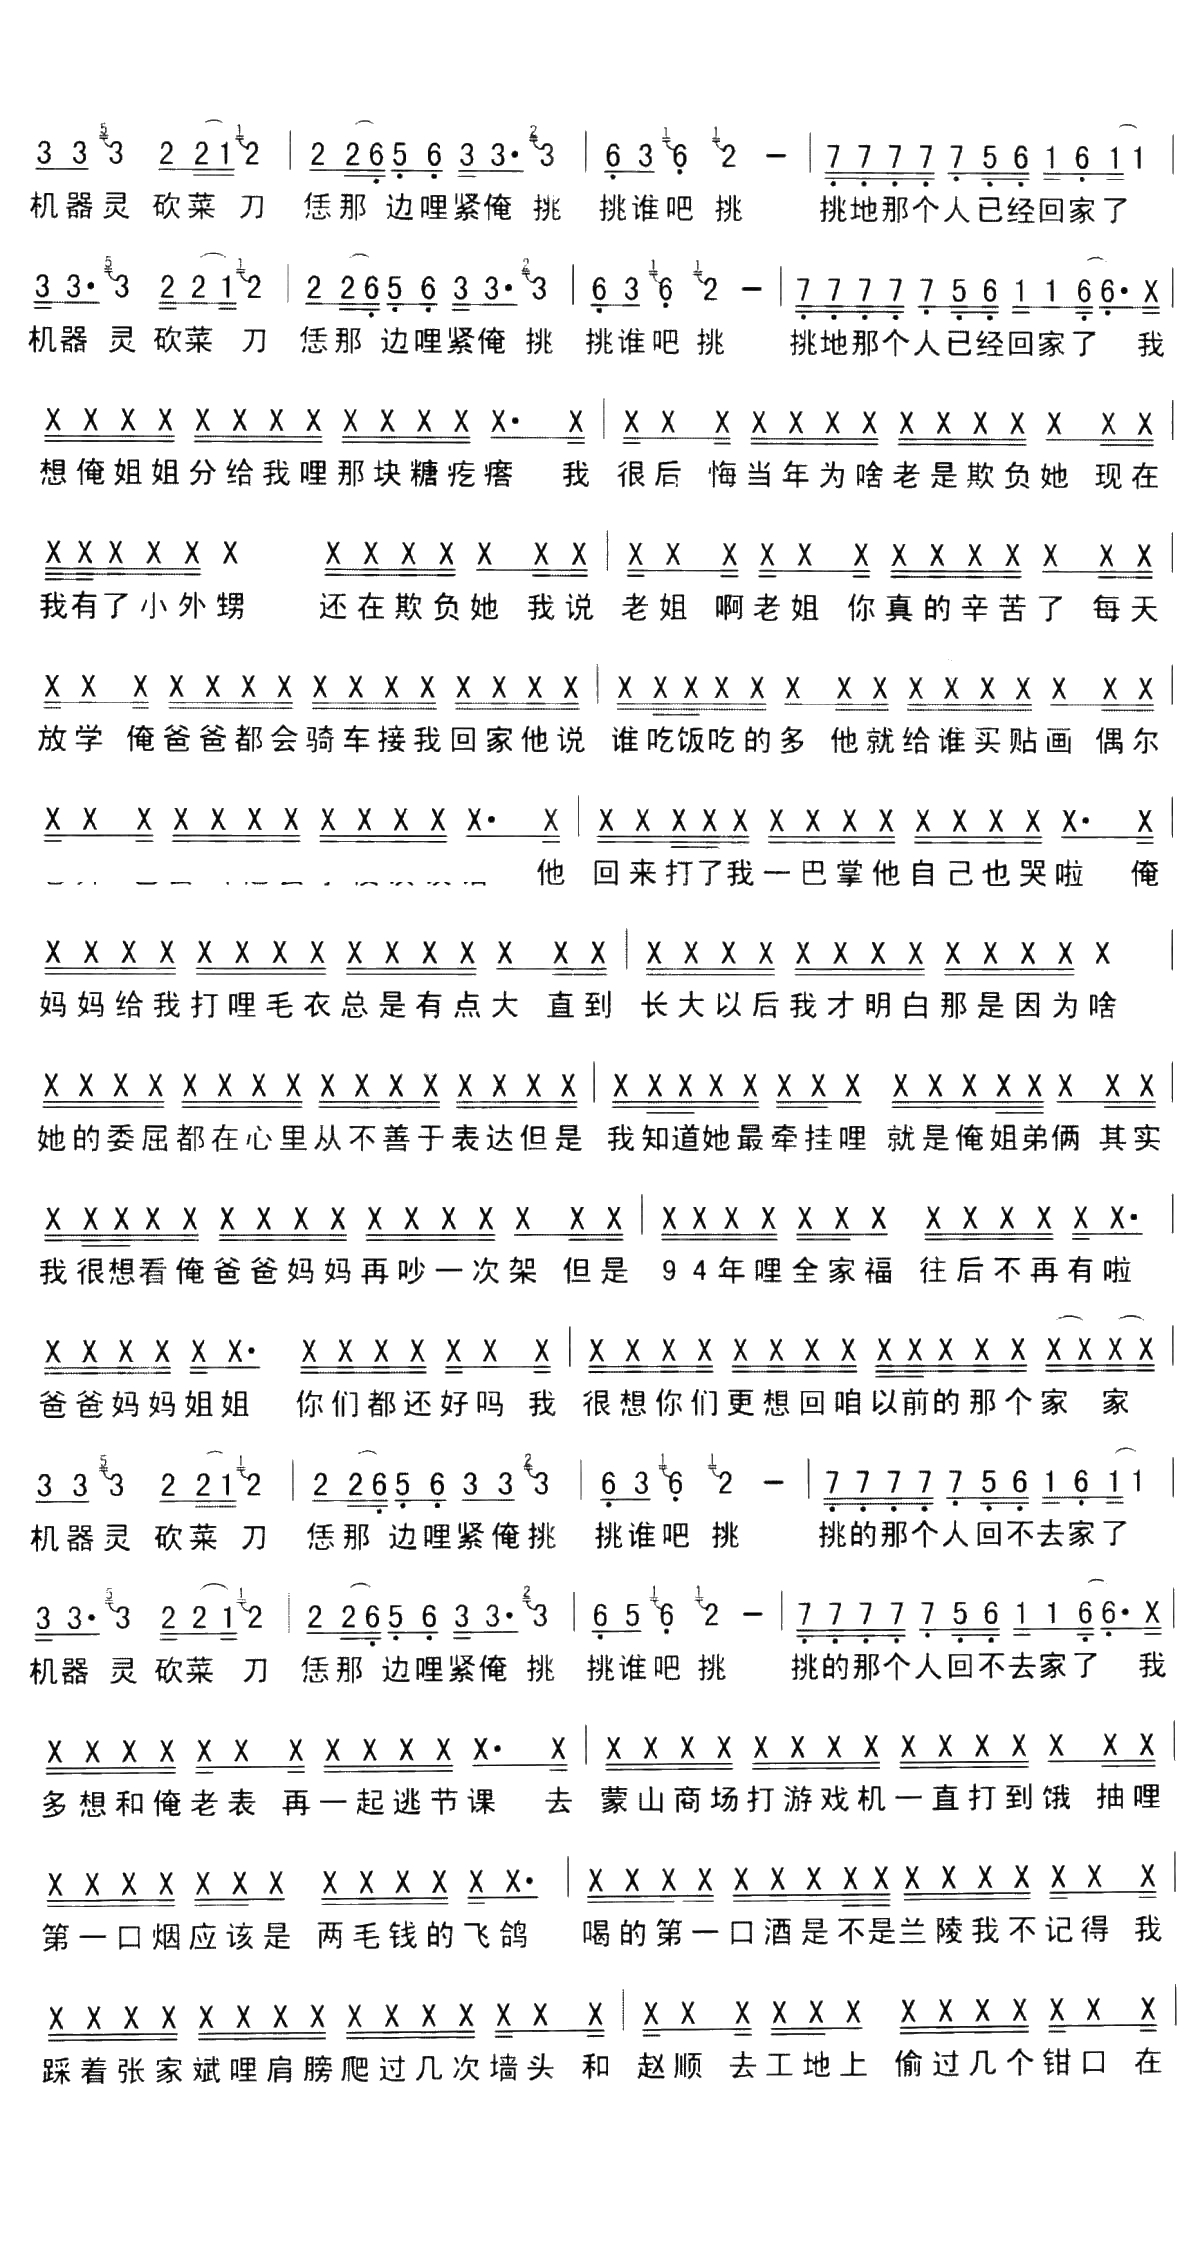 3 3 5 3 2 2 1 1 2 | 2 2 6 5 6 3 3· 2 3 | 6 3 1 6 1 2 - | 7 7 7 7 7 5 6 1 6 1 1 |
机器灵 砍菜 刀 恁那 边哩紧俺 挑 挑谁吧 挑 挑地那个人已经回家了
3 3· 5 3 2 2 1 1 2 | 2 2 6 5 6 3 3· 2 3 | 6 3 1 6 1 2 - | 7 7 7 7 7 5 6 1 1 6 6· X |
机器 灵 砍菜 刀 恁那 边哩紧俺 挑 挑谁吧 挑 挑地那个人已经回家了 我
X X X X X X X X X X X X X· X | X X X X X X X X X X X X X X |
想俺姐姐分给我哩那块糖疙瘩 我 很后 悔当年为啥老是欺负她 现在
X X X X X X X X X X X X X | X X X X X X X X X X X X X |
我有了小外甥 还在欺负她 我说 老姐 啊老姐 你真的辛苦了 每天
X X X X X X X X X X X X X X X | X X X X X X X X X X X X X X X |
放学 俺爸爸都会骑车接我回家他说 谁吃饭吃的多 他就给谁买贴画 偶尔
X X X X X X X X X X X X· X | X X X X X X X X X X X X X X· X |
他 回来打了我一巴掌他自己也哭啦 俺
X X X X X X X X X X X X X X X | X X X X X X X X X X X X X |
妈妈给我打哩毛衣总是有点大 直到 长大以后我才明白那是因为啥
X X X X X X X X X X X X X X X X | X X X X X X X X X X X X X X X X |
她的委屈都在心里从不善于表达但是 我知道她最牵挂哩 就是俺姐弟俩 其实
X X X X X X X X X X X X X X X X | X X X X X X X X X X X X X· |
我很想看俺爸爸妈妈再吵一次架 但是 94年哩全家福 往后不再有啦
X X X X X X· X X X X X X X | X X X X X X X X X X X X X X X X X |
爸爸妈妈姐姐 你们都还好吗 我 很想你们更想回咱以前的那个家 家
3 3 5 3 2 2 1 1 2 | 2 2 6 5 6 3 3 2 3 | 6 3 1 6 1 2 - | 7 7 7 7 7 5 6 1 6 1 1 |
机器灵 砍菜 刀 恁那 边哩紧俺挑 挑谁吧 挑 挑的那个人回不去家了
3 3· 5 3 2 2 1 1 2 | 2 2 6 5 6 3 3· 2 3 | 6 5 1 6 1 2 - | 7 7 7 7 7 5 6 1 1 6 6· X |
机器 灵 砍菜 刀 恁那 边哩紧俺 挑 挑谁吧 挑 挑的那个人回不去家了 我
X X X X X X X X X X X X· X | X X X X X X X X X X X X X X X |
多想和俺老表 再一起逃节课 去 蒙山商场打游戏机一直打到饿 抽哩
X X X X X X X X X X X X X· | X X X X X X X X X X X X X X X X |
第一口烟应该是 两毛钱的飞鸽 喝的第一口酒是不是兰陵我不记得 我
X X X X X X X X X X X X X X X | X X X X X X X X X X X X X |
踩着张家斌哩肩膀爬过几次墙头 和 赵顺 去工地上 偷过几个钳口 在